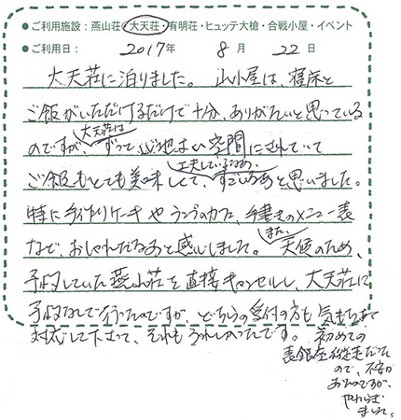 ●ご利用施設：燕山荘・大天荘・有明荘・ヒュッテ大槍・合戦小屋・イベント
●ご利用日：2017年 8月 22日
大天荘に泊りました。山小屋は、寝床と
ご飯がいただけるだけで十分、ありがたいと思っている
のですが、大天荘は ずっと心地よい空間にされていて
ご飯もとても美味しくて、工夫している すごいなあと思いました。
特に手作りケーキやランプのカフェ、手書きのメニュー表
など、おしゃれだなあと感じました。また、天候のため、
予約していた燕山荘を直接キャンセルし、大天荘に
予約なしで行ったのですが、どちらの受付の方も気持ちよく
対応して下さって、それもうれしかったです。初めての
表銀座縦走だった
ので、不安が
あったのですが、
やわらぎ
ました。